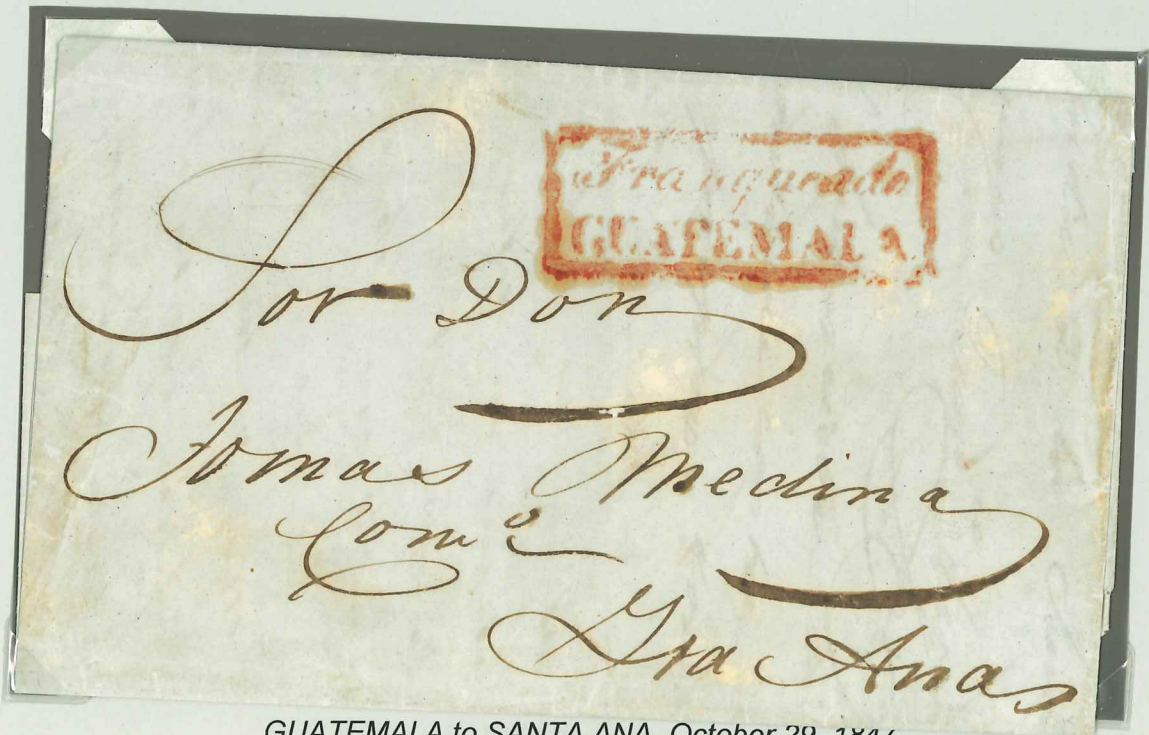 Franqueado
GUATEMALA
Sor Don
Tomas Medina
Com.o
Sta Ana
GUATEMALA to SANTA ANA, October 29, 1847